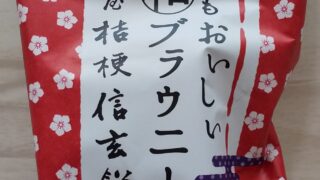 もおいしい
ブラウニー
屋桔梗信玄餅